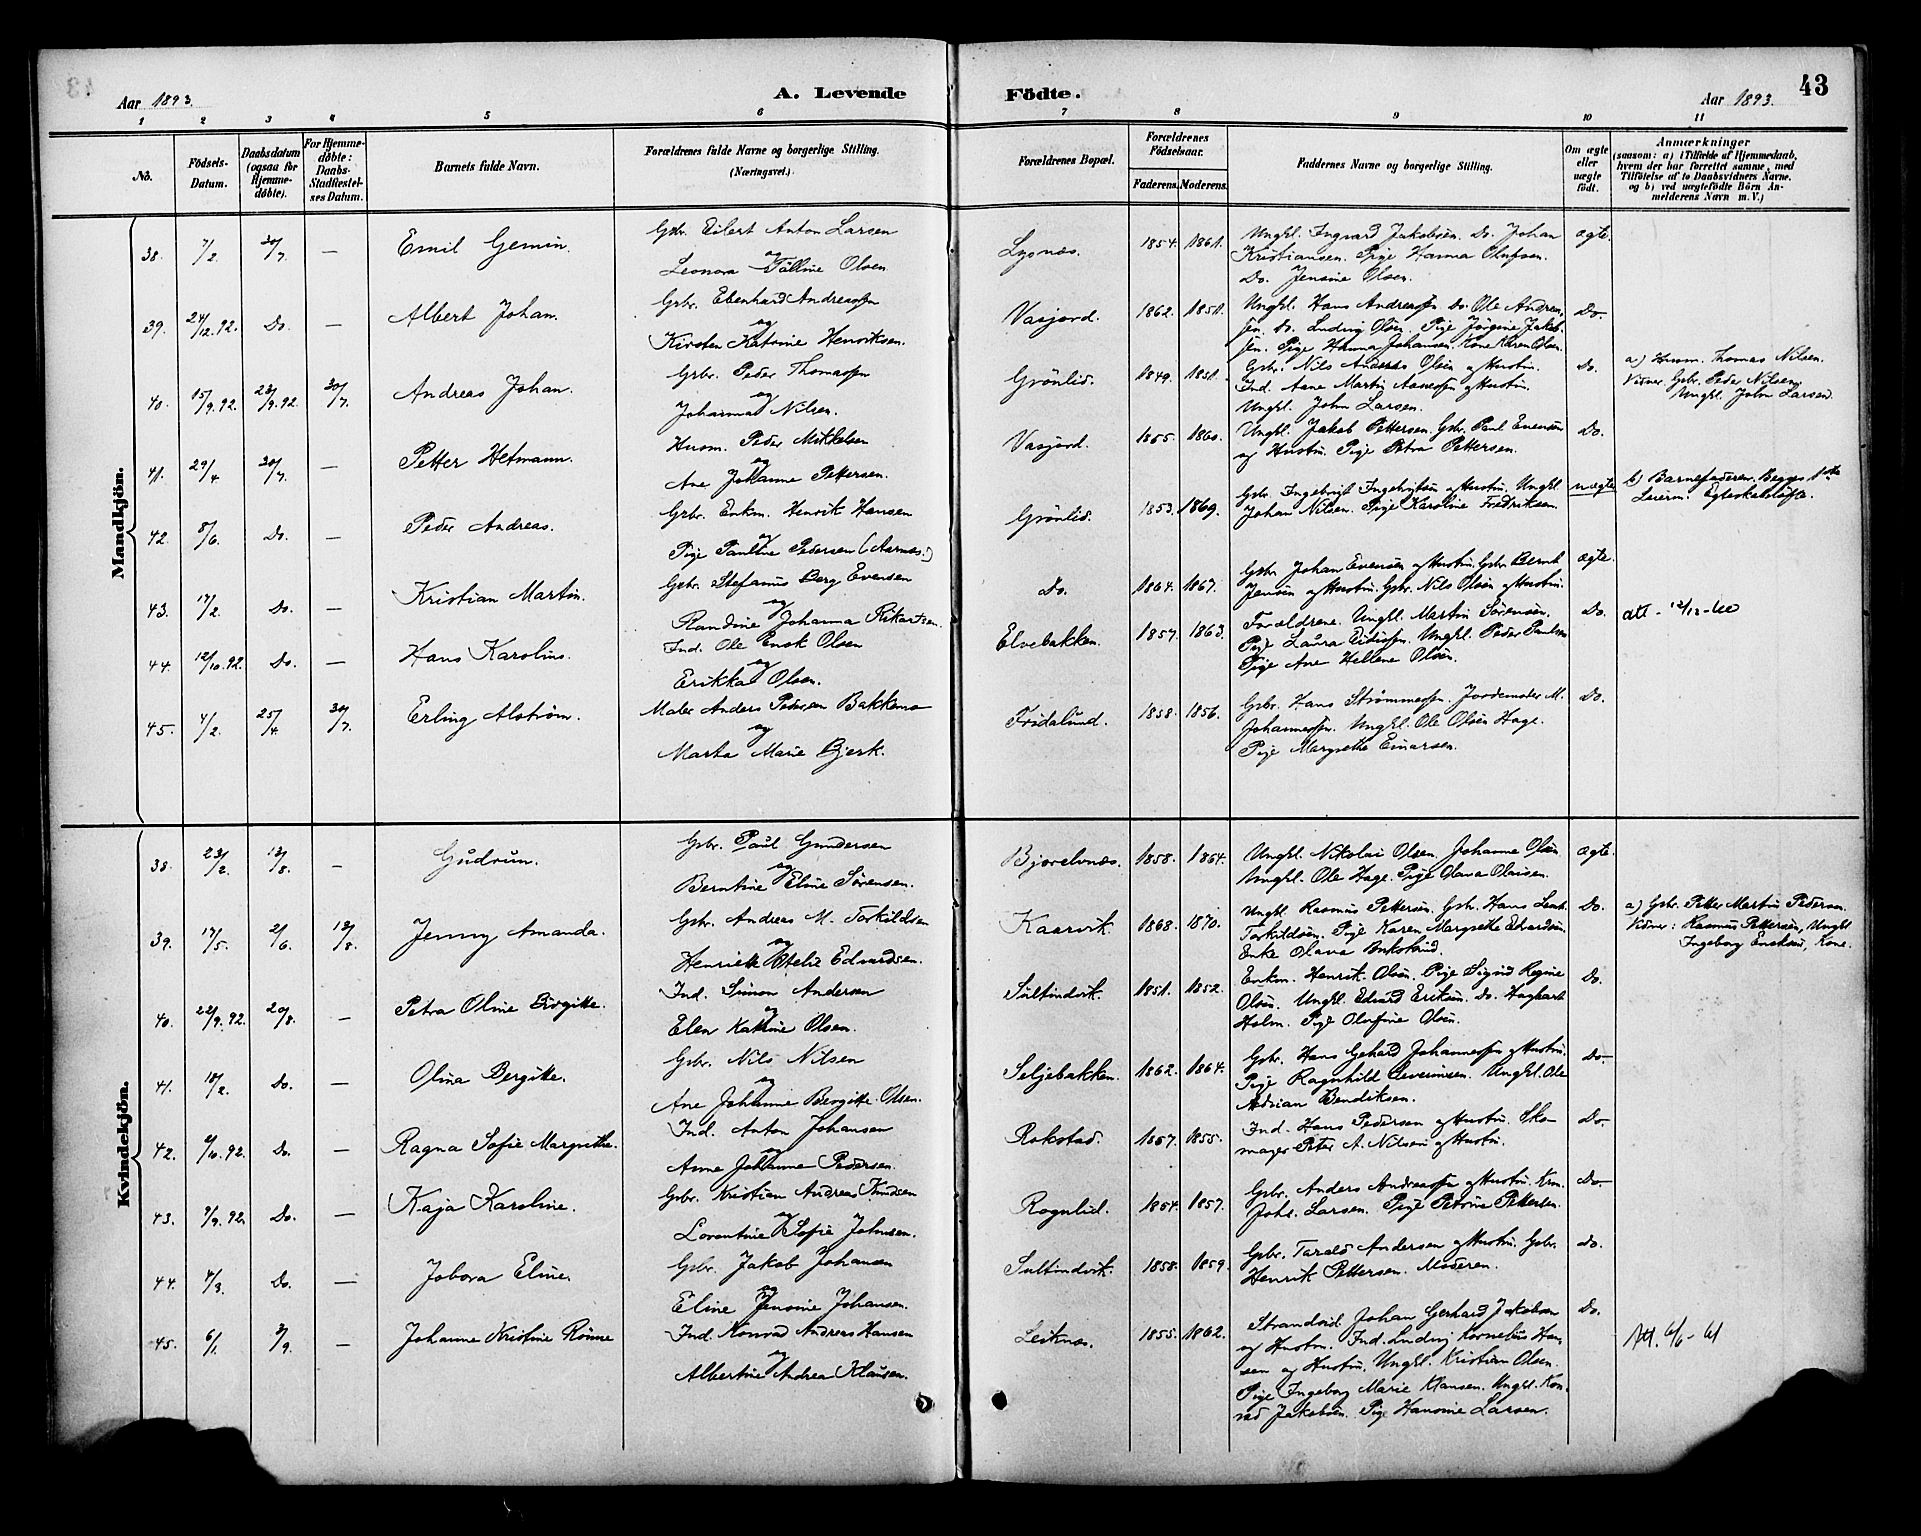 Aar 1893.
A. Levende
Födte.
Aar 1893.
43
1 2 3 4 5 6 7 8 9 10 11
No.
Födsels-Datum.
Daabsdatum (ogsaa for Hjemme-döbte).
For Hjemme-döbte: Daabs-Stadfæstel-ses Datum.
Barnets fulde Navn.
Forældrenes fulde Navne og borgerlige Stilling.
(Næringsvei.)
Forældrenes Bopæl.
Forældrenes Födselsaar.
Faderens. Moderens.
Faddernes Navne og borgerlige Stilling.
Om ægte eller uægte födt.
Anmærkninger
(saasom: a) i Tilfælde af Hjemmedaab,
hvem der har forrettet samme, med
Tilföielse af to Daabsvidners Navne.
og b) ved uægtefödte Börn An-
melderens Navn m. V.)
Mandkjön.
38. 7/2. 30/7. — Emil Gemin. Gbr. Eilert Anton Larsen
og
Leonora Tölline Olsen
Lysnæs. 1854. 1861. Ungkl. Ingvard Jakobsen. Do. Johan
Kristiansen. Pige Hanna Olufsen.
Do. Jensine Olsen.
ægte.
39. 24/12.92. Do. — Albert Johan. Gbr. Ebenhard Andreassen
og
Kirsten Katrine Henriksen.
Vasjord. 1862. 1851. Ungkl. Hans Andreassen Do. Ole Andrea-
sen. Do. Ludvig Olsen. Pige Jörgine Jakob-
sen. Pige Hanna Johansen. Kone Karen Olsen.
Do.
40. 15/9.92. 23/9.92. 30/7. Andreas Johan. Gbr. Peder Thomassen
og
Johanna Nilsen.
Grönlid. 1849. 1851. Gbr. Nils Anders Olsen og Hustru.
Ind. Aane Martin Aanesen og Hustru.
Ungkl. John Larsen.
Do. a) Husm. Thomas Nilsen.
Vidner. Gbr. Peder Nilsen,
Ungkl. John Larsen.
41. 29/4 30/7. — Petter Hetmann. Husm. Peder Mikkelsen
og
Ane Johanne Pettersen.
Vasjord. 1855. 1860. Ungkl. Jakob Pettersen. Gbr. Paul Evensen
og Hustru. Pige Petra Pettersen.
Do.
42. 8/6. Do. — Peder Andreas. Gbr. Enkm. Henrik Hansen
og
Pige Pauline Pedersen (Aarnæs.)
Grönlid. 1853. 1869. Gbr. Ingebrigt Ingebrigtsen og Hustru. Ungkl.
Johan Nilsen. Pige Karoline Fredriksen.
uægte b) Barnefaderen. Begges 1ste
Leierm. Egteskabsløfte.
43. 17/2. Do. — Kristian Martin. Gbr. Stefanus Berg Evensen
og
Randine Johanna Rikartsen.
Do. 1864. 1867. Gbr. Johan Evensen og Hustru. Gbr. Bernt
Jensen og Hustru. Gbr. Nils Olsen og Hustru.
ægte.
44. 12/10.92. Do. — Hans Karolius. Ind. Ole Enok Olsen
og
Erikka Olsen.
Elvebakken. 1857. 1863. Forældrene. Ungkl. Martin Sörensen.
Pige Laura Eidissen. Ungkl. Peder Paulsen
Pige Ane Hellene Olsen.
Do. att - 12/12-40
45. 4/2. 25/4. 30/7. Erling Alström. Maler Anders Pedersen Bakkemo
og
Marta Marie Bjerk.
Fridalund. 1858. 1856. Gbr. Hans Strømmesen. Jordemoder M.
Johannesen. Ungkl. Ole Olsen Hage.
Pige Margrethe Einarsen.
Do.
Kvindekjön.
38. 23/2. 13/8. — Gudrun. Gbr. Paul Gundersen
og
Berntine Eline Sörensen.
Bjorelvnæs. 1858. 1864. Ungkl. Nikolai Olsen. Johanne Olsen
Ungkl. Ole Hage. Pige Olava Olaisen.
ægte.
39. 17/5. 2/6. 13/8. Jenny Amanda. Gbr. Andreas M. Torkildsen
og
Henriette Otelie Edvardsen.
Kaarvik. 1868. 1870. Ungkl. Rasmus Pettersen. Gbr. Hans Lenh.
Torkildsen. Pige Karen Margrethe Edvardsen.
Enke Olava
Do. a) Gbr. Petter Martin Pedersen.
Vidner: Rasmus Pettersen, Ungkl.
Ingeborg Kone.
40. 22/9.92. 20/8. — Petra Oline Birgitte. Ind. Simon Andersen
og
Elen Katrine Olsen.
Sultindvik. 1851. 1852. Enkm. Henrik Olsen. Pige Sigrid Regine
Olsen. Ungkl. Edvard Eriksen. Do. Hagbart
Holm. Pige Olufine Olsen.
Do.
41. 18/2. Do. — Olina Bergitte. Gbr. Nils Nilsen
og
Ane Johanne Bergitte Olsen.
Seljebakken. 1862. 1864. Gbr. Hans Gehard Johannessen og Hustru.
Pige Ragnhild Severinsen. Ungkl. Ole
Adrian Bendiksen.
Do.
42. 9/10.92. Do. — Ragna Sofie Margrethe. Ind. Anton Johansen
og
Anne Johanne Pedersen.
Rokstad. 1857. 1855. Ind. Hans Pedersen og Hustru. Sko-
mager Peter A. Nilsen og Hustru.
Do.
43. 9/9.92. Do. — Kaja Karoline. Gbr. Kristian Andreas Knudsen
og
Lorentine Sofie Johnsen.
Rognlid. 1854. 1857. Gbr. Anders Andreassen og Hustru. Krn.
Johs. Larsen. Pige Petrine Pettersen.
Do.
44. 4/3. Do. — Jobora Eline. Gbr. Jakob Johansen
og
Eline Jensine Johansen.
Sultindvik. 1858. 1859. Gbr. Tarald Andersen og Hustru. Gbr.
Henrik Pettersen. Moderen.
Do.
45. 6/1. 3/9. — Johanne Kristine Rönne Ind. Konrad Andreas Hansen
og
Albertine Andrea Klausen.
Leiknæs. 1855. 1862. Strandsid. Johan Gerhard Jakobsen
og Hustru. Ind. Ludvig Kornelius Han-
sen og Hustru. Ungkl. Kristian Olsen.
Pige Ingeborg Marie Klausen. Ungkl. Kon-
rad Jakobsen. Pige Hansine Larsen.
Do. Att. 6/6-61